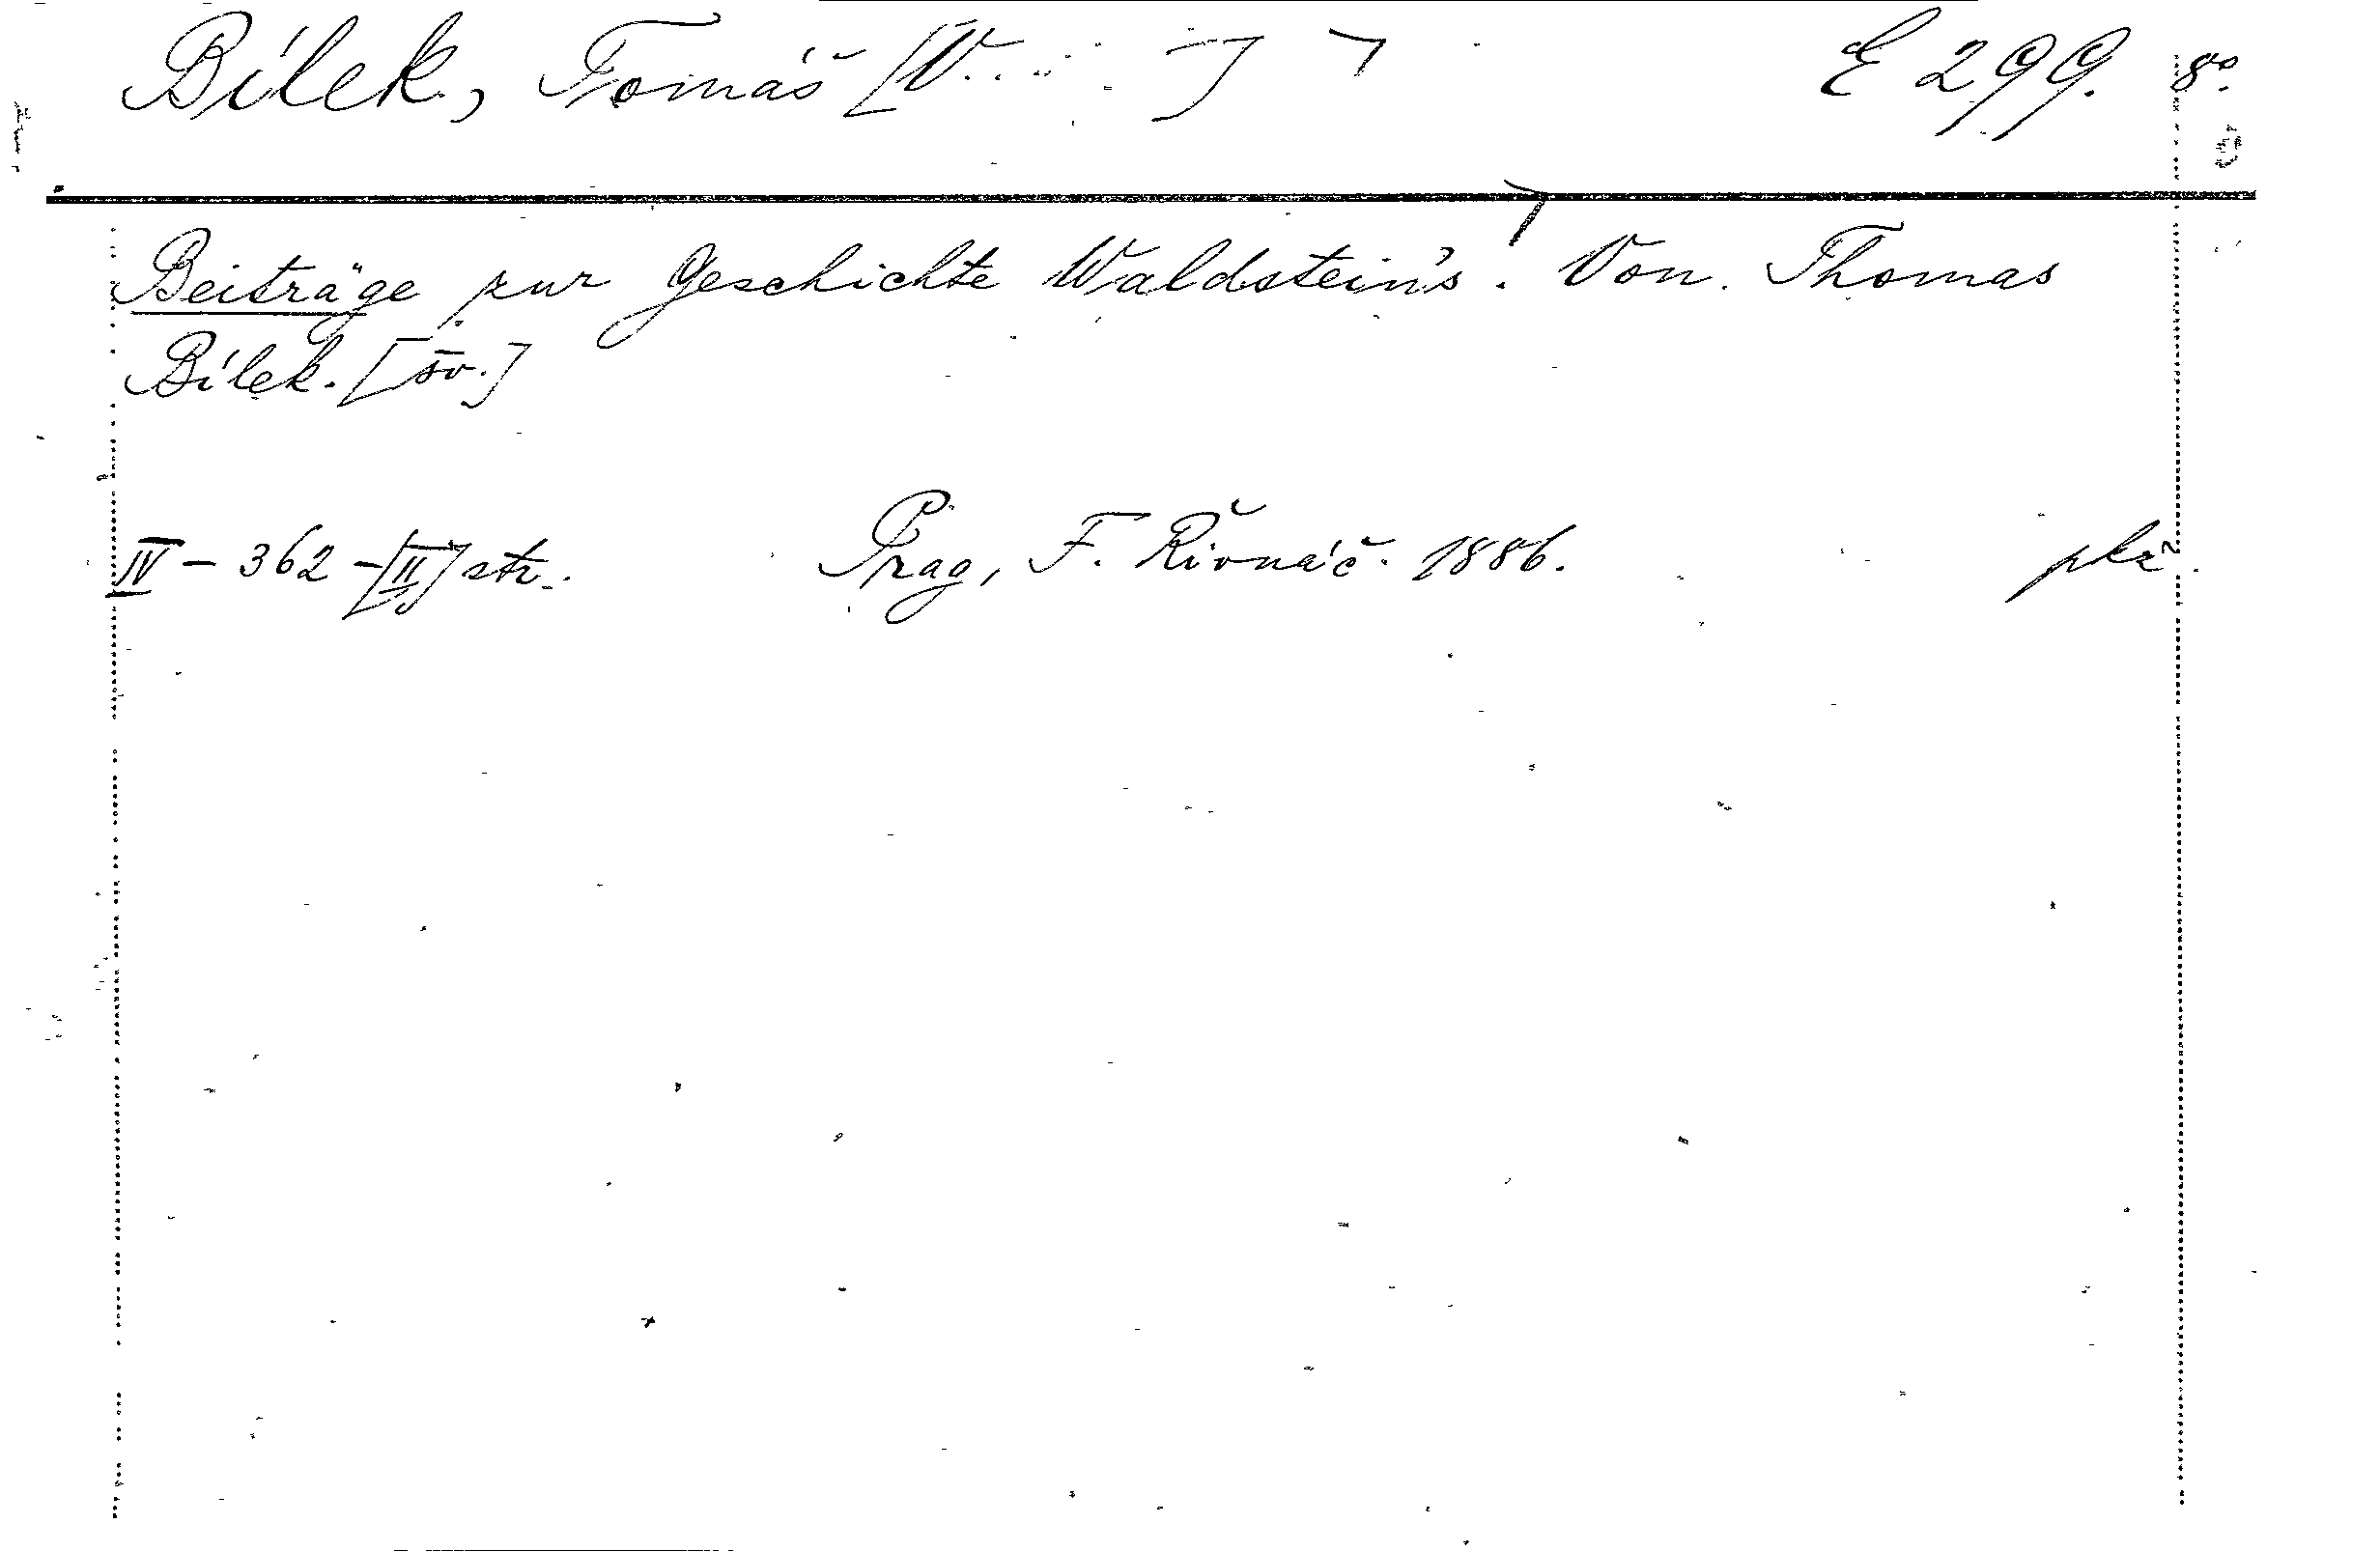 Bílek, Tomáš [V. ] E 299. 8º.
Beiträge zur Geschichte Waldstein's. Von Thomas
Bílek. [sv.]
IV – 362 – [II] str. Prag, F. Řivnáč. 1886.